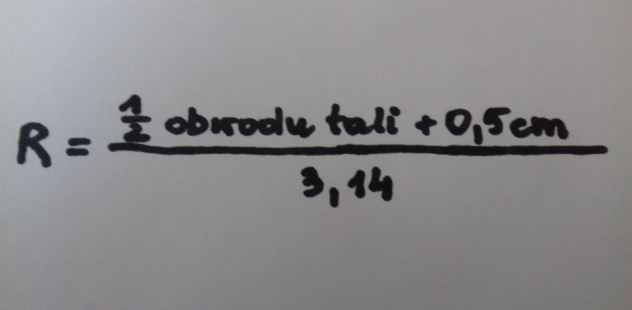 R = ½ obwodu tali + 0,5cm
3,14